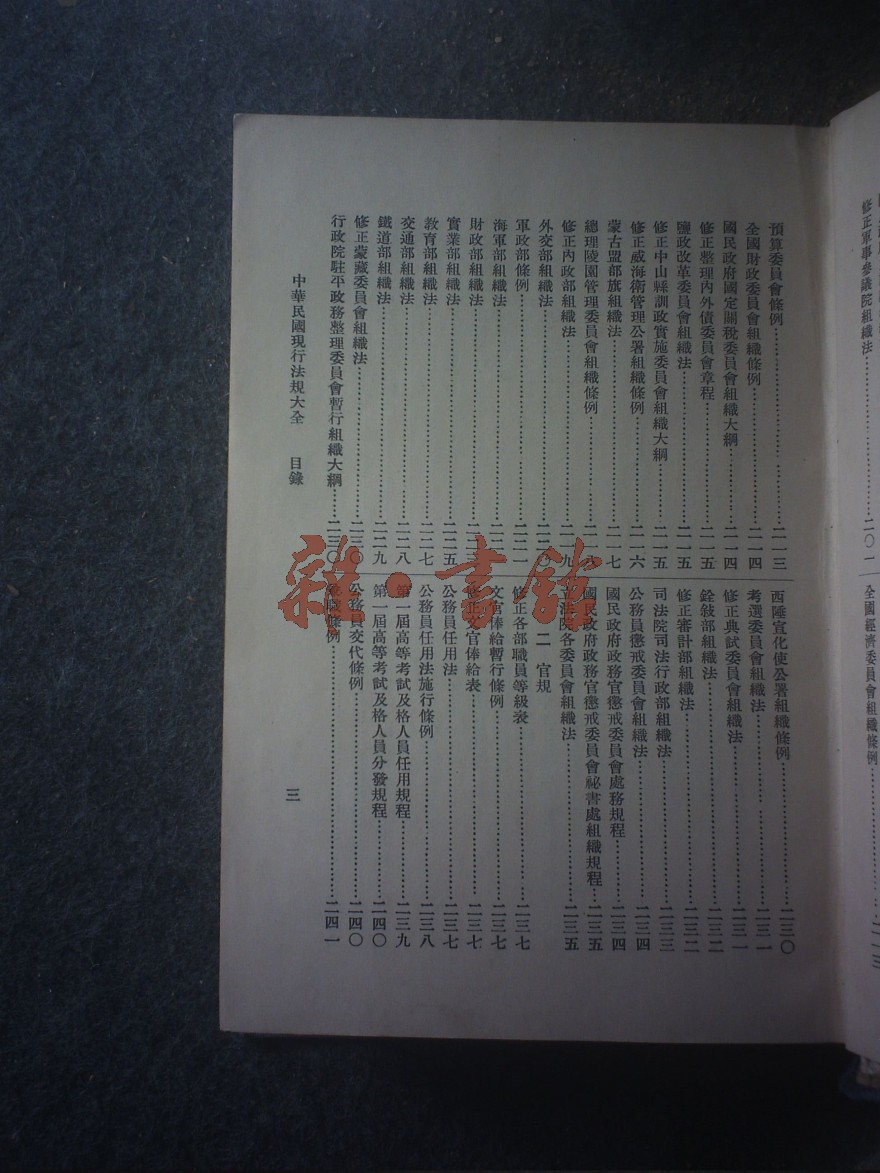 修正軍事參議院組織法……二〇一
全國經濟委員會組織條例……二一三
預算委員會條例……二一三
全國財政委員會組織條例……二一四
國民政府國定關稅委員會組織大綱……二一四
修正整理內外債委員會章程……二一五
鹽政改革委員會組織法……二一五
修正中山縣訓政實施委員會組織大綱……二一五
修正威海衛管理公署組織條例……二一六
蒙古盟部旗組織法……二一七
總理陵園管理委員會組織條例……二一八
修正內政部組織法……二一九
外交部組織法……二二〇
軍政部條例……二二一
海軍部組織法……二二二
財政部組織法……二二三
實業部組織法……二二五
教育部組織法……二二七
交通部組織法……二二八
鐵道部組織法……二二九
修正蒙藏委員會組織法……二三〇
行政院駐平政務整理委員會暫行組織大綱……二三〇
西陲宣化使公署組織條例……二三〇
考選委員會組織法……二三一
修正典試委員會組織法……二三一
銓敍部組織法……二三二
修正審計部組織法……二三二
司法院司法行政部組織法……二三三
公務員懲戒委員會組織法……二三四
國民政府政務官懲戒委員會處務規程……二三四
國民政府政務官懲戒委員會祕書處組織規程……二三五
立法院各委員會組織法……二三五
二 官規
修正各部職員等級表……二三七
文官俸給暫行條例……二三七
修正文官俸給表……二三七
公務員任用法……二三七
公務員任用法施行條例……二三八
第一屆高等考試及格人員任用規程……二三九
第一屆高等考試及格人員分發規程……二四〇
公務員交代條例……二四〇
條例……二四一
中華民國現行法規大全 目錄 三
雜·書館